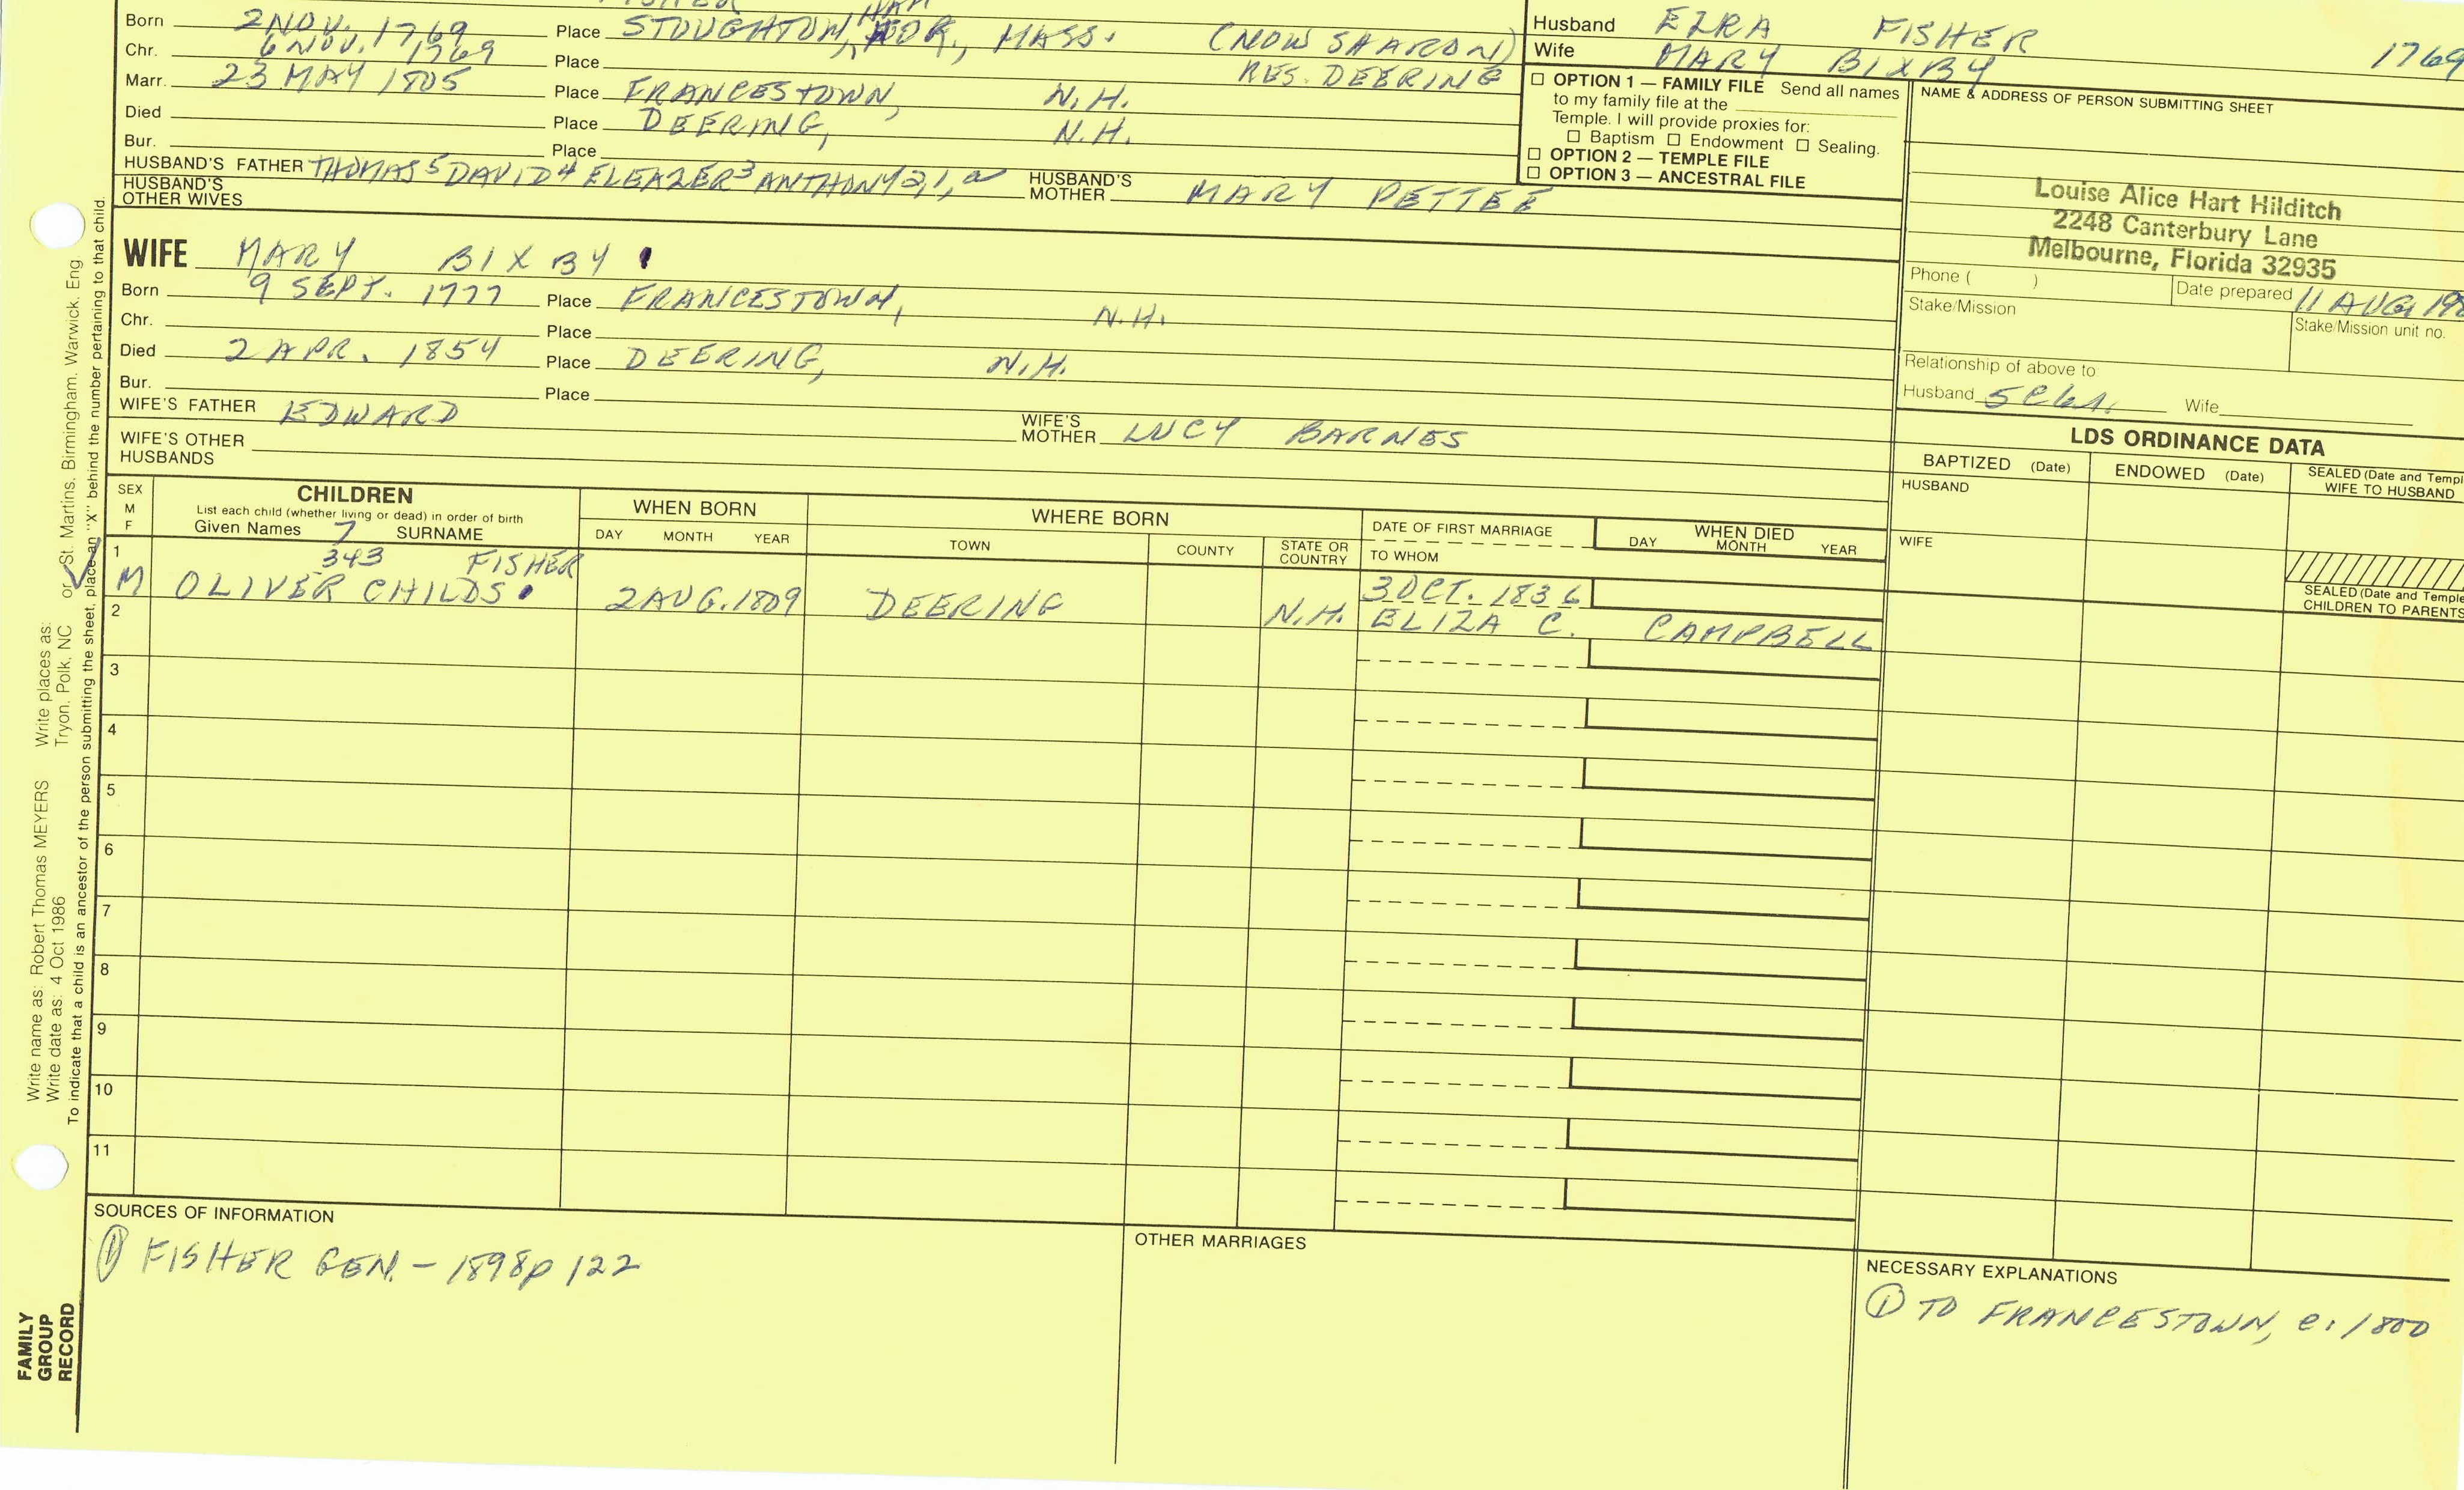 Born 2 NOV. 1769 Place STOUGHTON, NOR., MASS. (NOW SHARON)
Chr. 6 NOV. 1769 Place RES. DEERING
Marr. 23 MAY 1805 Place FRANCESTOWN, N.H.
Died Place DEERING, N.H.
Bur. Place
HUSBAND'S FATHER THOMAS5 DAVID4 ELEAZER3 ANTHONY2,1,a HUSBAND'S MOTHER MARY PETTEE
HUSBAND'S OTHER WIVES
Husband EZRA FISHER
Wife MARY BIXBY 1769
☐ OPTION 1 — FAMILY FILE Send all names
to my family file at the
Temple. I will provide proxies for:
☐ Baptism ☐ Endowment ☐ Sealing.
☐ OPTION 2 — TEMPLE FILE
☐ OPTION 3 — ANCESTRAL FILE
NAME & ADDRESS OF PERSON SUBMITTING SHEET
Louise Alice Hart Hilditch
2248 Canterbury Lane
Melbourne, Florida 32935
Phone ( )
Date prepared 11 AUG 198
Stake/Mission
Stake/Mission unit no.
Relationship of above to:
Husband Wife
WIFE MARY BIXBY
Born 9 SEPT. 1777 Place FRANCESTOWN, N.H.
Chr. Place
Died 2 APR. 1854 Place DEERING, N.H.
Bur. Place
WIFE'S FATHER EDWARD WIFE'S MOTHER LUCY BARNES
WIFE'S OTHER HUSBANDS
LDS ORDINANCE DATA
BAPTIZED (Date) ENDOWED (Date) SEALED (Date and Templ
WIFE TO HUSBAND
HUSBAND
WIFE
SEALED (Date and Temple
CHILDREN TO PARENTS
SEX
M
F
CHILDREN
List each child (whether living or dead) in order of birth
Given Names 7 SURNAME
WHEN BORN
DAY MONTH YEAR
WHERE BORN
TOWN COUNTY STATE OR COUNTRY
DATE OF FIRST MARRIAGE
TO WHOM
WHEN DIED
DAY MONTH YEAR
1 343 FISHER
M OLIVER CHILDS 2 AUG. 1809 DEERING N.H. 3 OCT. 1836
ELIZA C. CAMPBELL
2
3
4
5
6
7
8
9
10
11
SOURCES OF INFORMATION
① FISHER GEN. - 1898 p 122
OTHER MARRIAGES
NECESSARY EXPLANATIONS
① TO FRANCESTOWN, c. 1800
Write name as: Robert Thomas MEYERS Write places as:
Write date as: 4 Oct 1986 Tryon, Polk, NC or St. Martins, Birmingham, Warwick, Eng
To indicate that a child is an ancestor of the person submitting the sheet, place an "X" behind the number pertaining to that child.
FAMILY
GROUP
RECORD